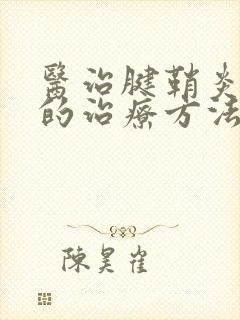 醫治腱鞘炎
的治療方法
陳昊雀